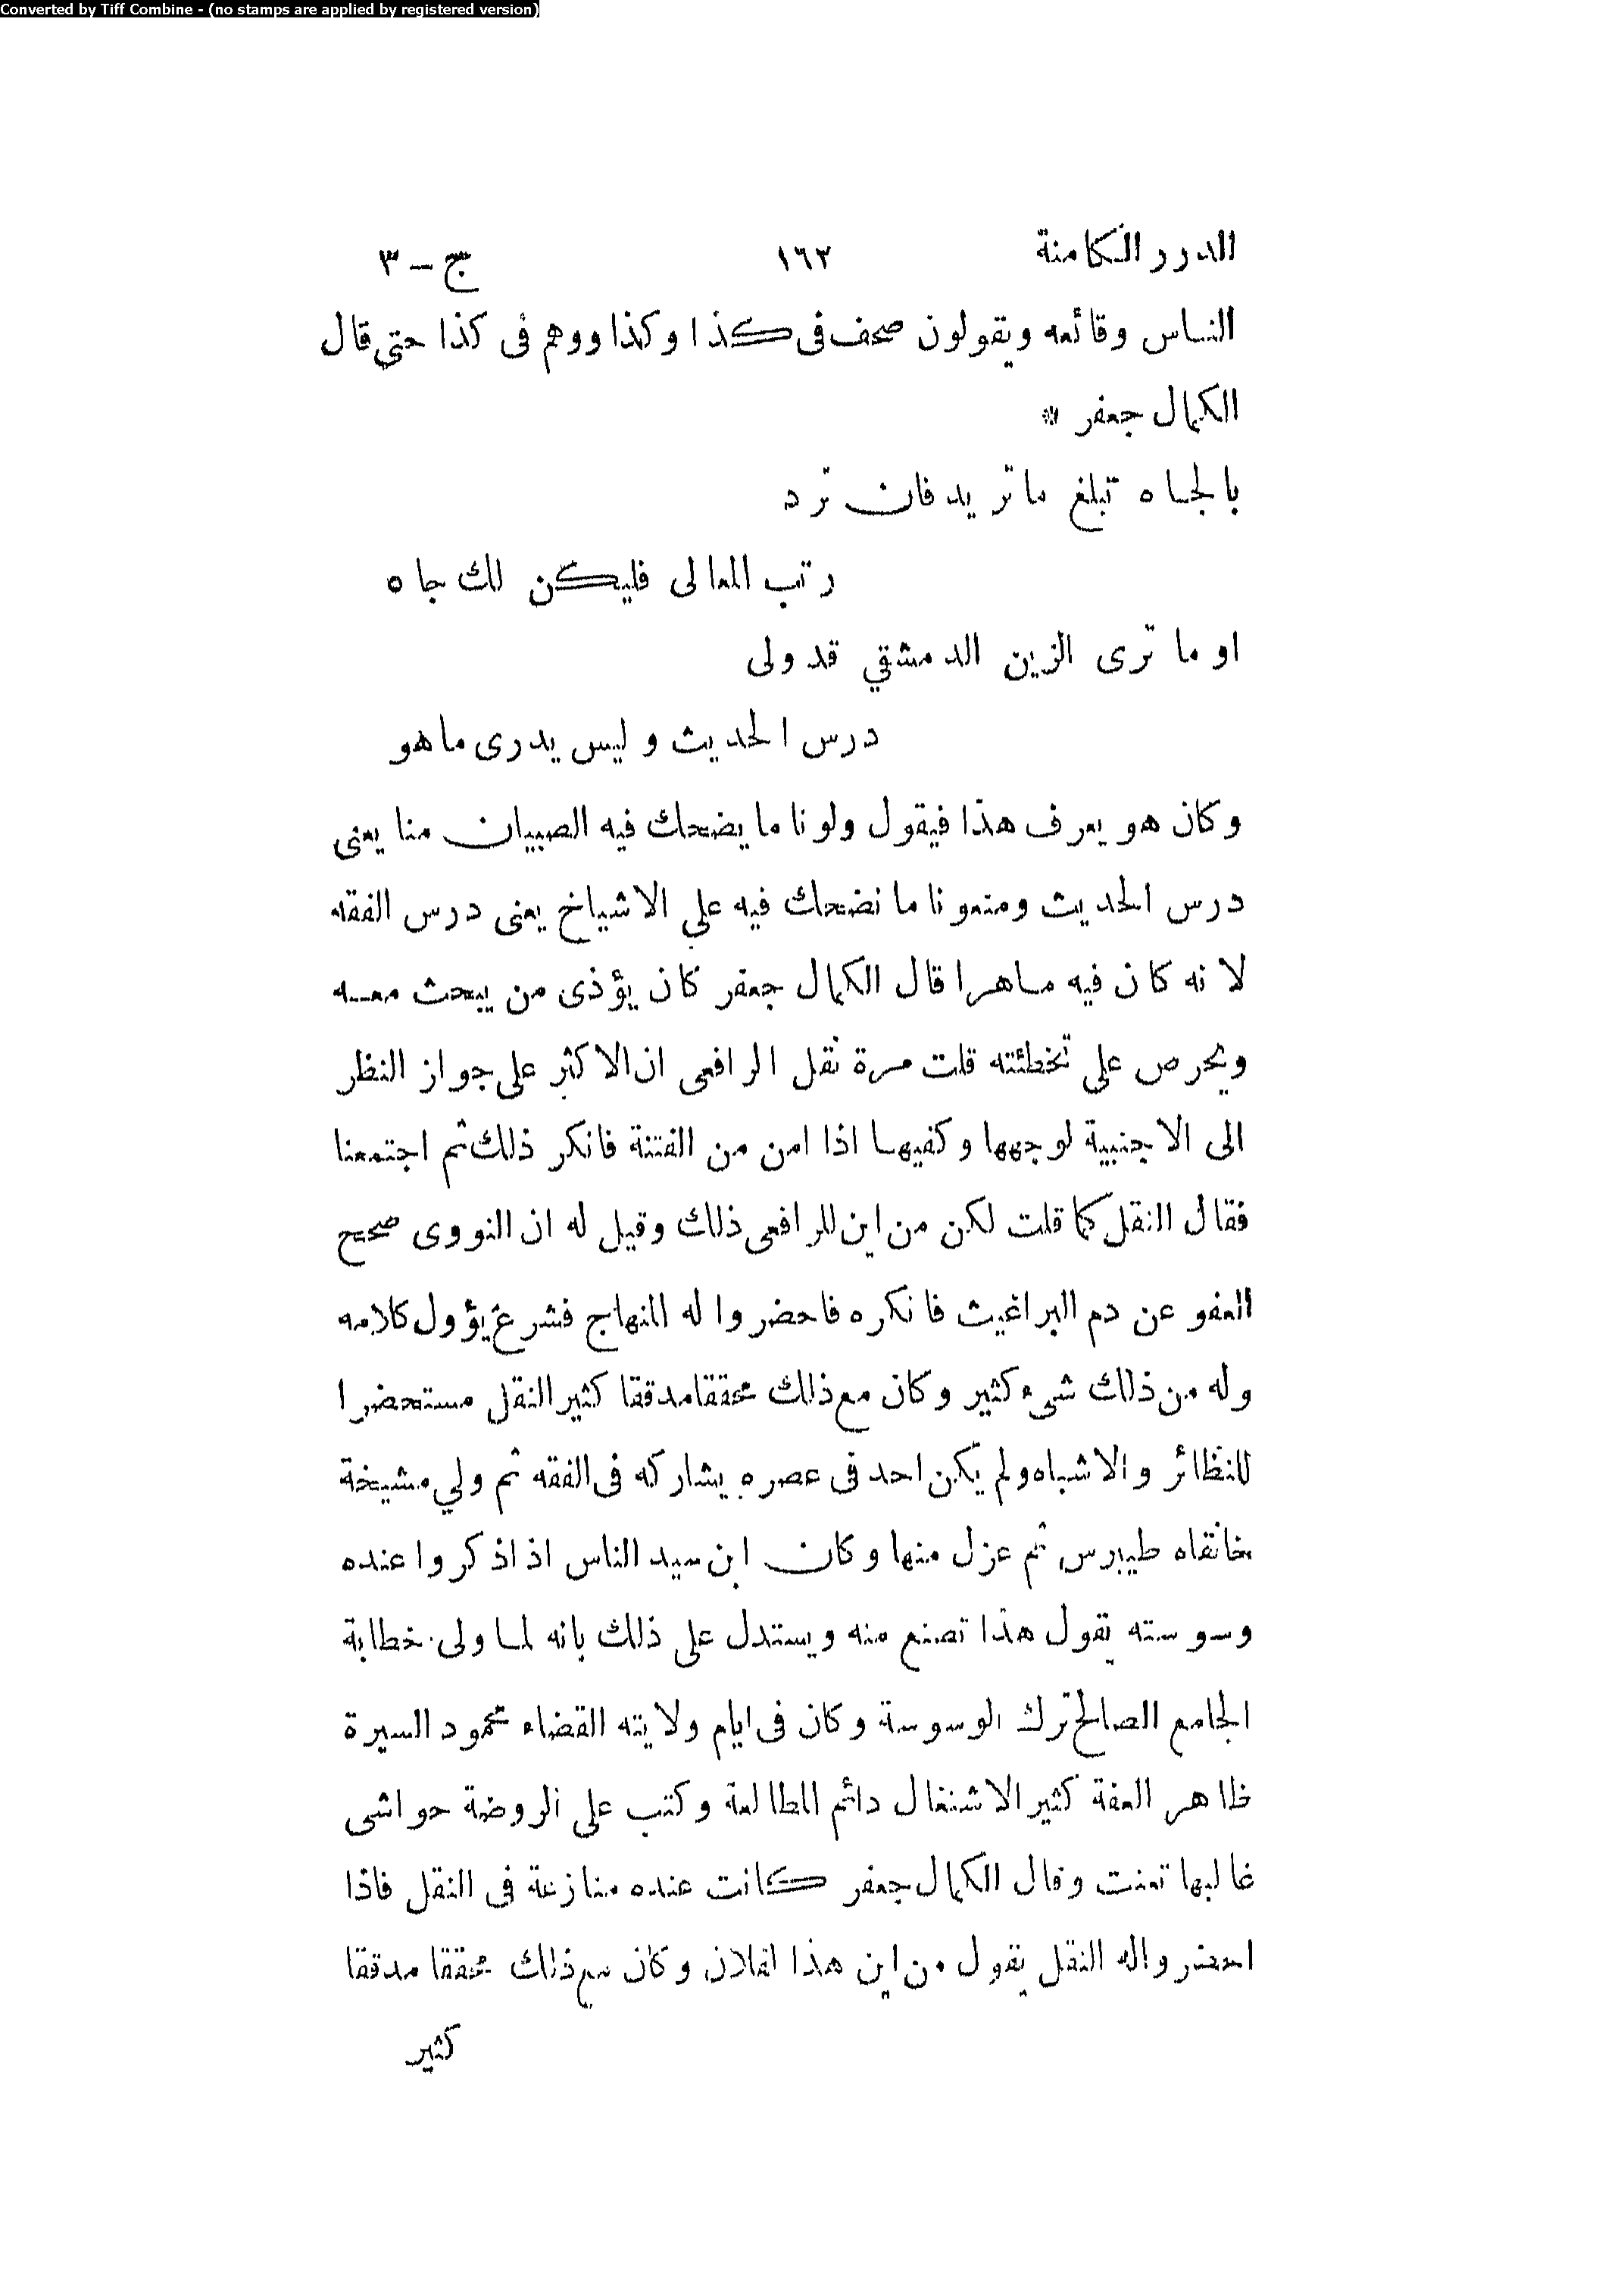 Converted by Tiff Combine - (no stamps are applied by registered version)
الدرر الكامنة ١٦٢ ج – ٣
الناس وقائعه ويقولون صحف فى كذا وكذا ووهم فى كذا حتى قال
الكمال جعفر *
بالجاه تبلغ ما تريد فان ترد
رتب المعالى فليكن لك جاه
او ما ترى الزين الدمشقي قد ولى
درس الحديث وليس يدرى ما هو
وكان هو يعرف هذا فيقول ولونا ما يضحك فيه الصبيان منا يعنى
درس الحديث ومنعونا ما نضحك فيه على الاشياخ يعنى درس الفقه
لانه كان فيه ماهرا قال الكمال جعفر كان يؤذى من يبحث معه
ويحرص على تخطئته قلت مرة نقل الرافعى ان الاكثر على جواز النظر
الى الاجنبية لوجهها وكفيها اذا امن من الفتنة فانكر ذلك ثم اجتمعنا
فقال النقل كما قلت لكن من اين للرافعى ذلك وقيل له ان النووى صحيح
العفو عن دم البراغيث فانكره فاحضروا له المنهاج فشرع يؤول كلامه
وله من ذلك شىء كثير وكان مع ذلك محققا مدققا كثير النقل مستحضرا
للنظائر والاشباه ولم يكن احد فى عصره يشاركه فى الفقه ثم ولي مشيخة
خانقاه طيبرس ثم عزل منها وكان ابن سيد الناس اذا ذكروا عنده
وسوسته يقول هذا تصنع منه ويستدل على ذلك بانه لما ولى خطابة
الجامع الصالح ترك الوسوسة وكان فى ايام ولايته القضاء محمود السيرة
ظاهر العفة كثير الاشتغال دائم المطالعة وكتب على الروضة حواشى
غالبها تعنت وقال الكمال جعفر كانت عنده منازعة فى النقل فاذا
احضروا له النقل يقول من اين هذا لفلان وكان مع ذلك محققا مدققا
كثير